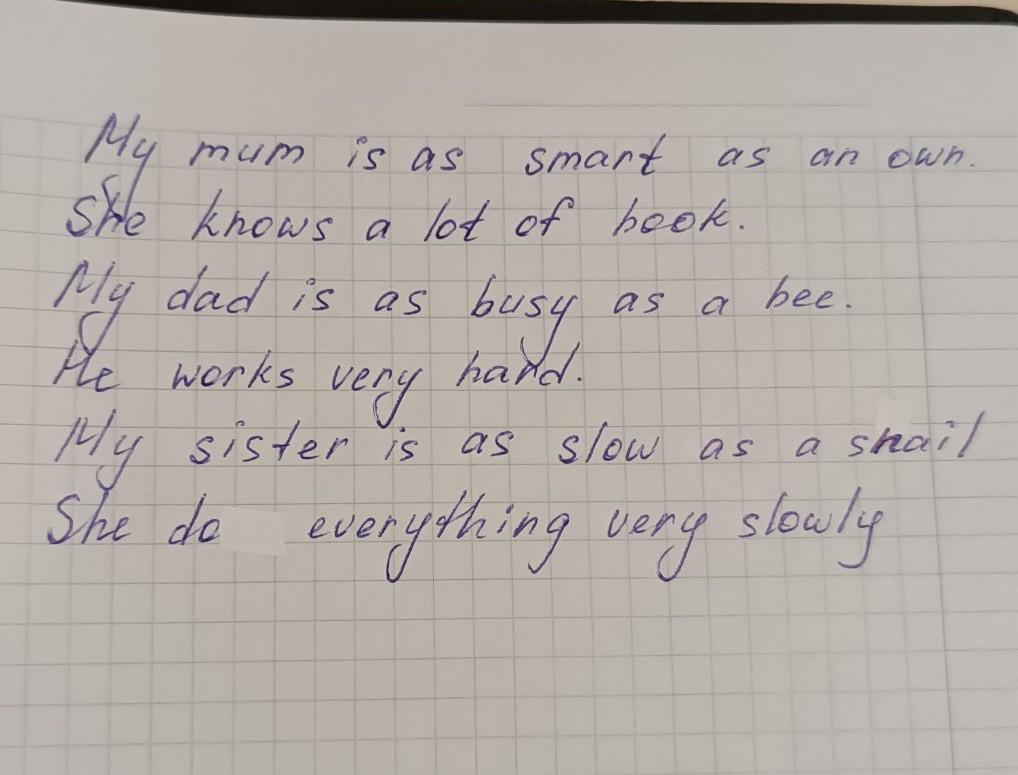 My mum is as smart as an own.
She knows a lot of book.
My dad is as busy as a bee.
He works very hard.
My sister is as slow as a snail
She do everything very slowly